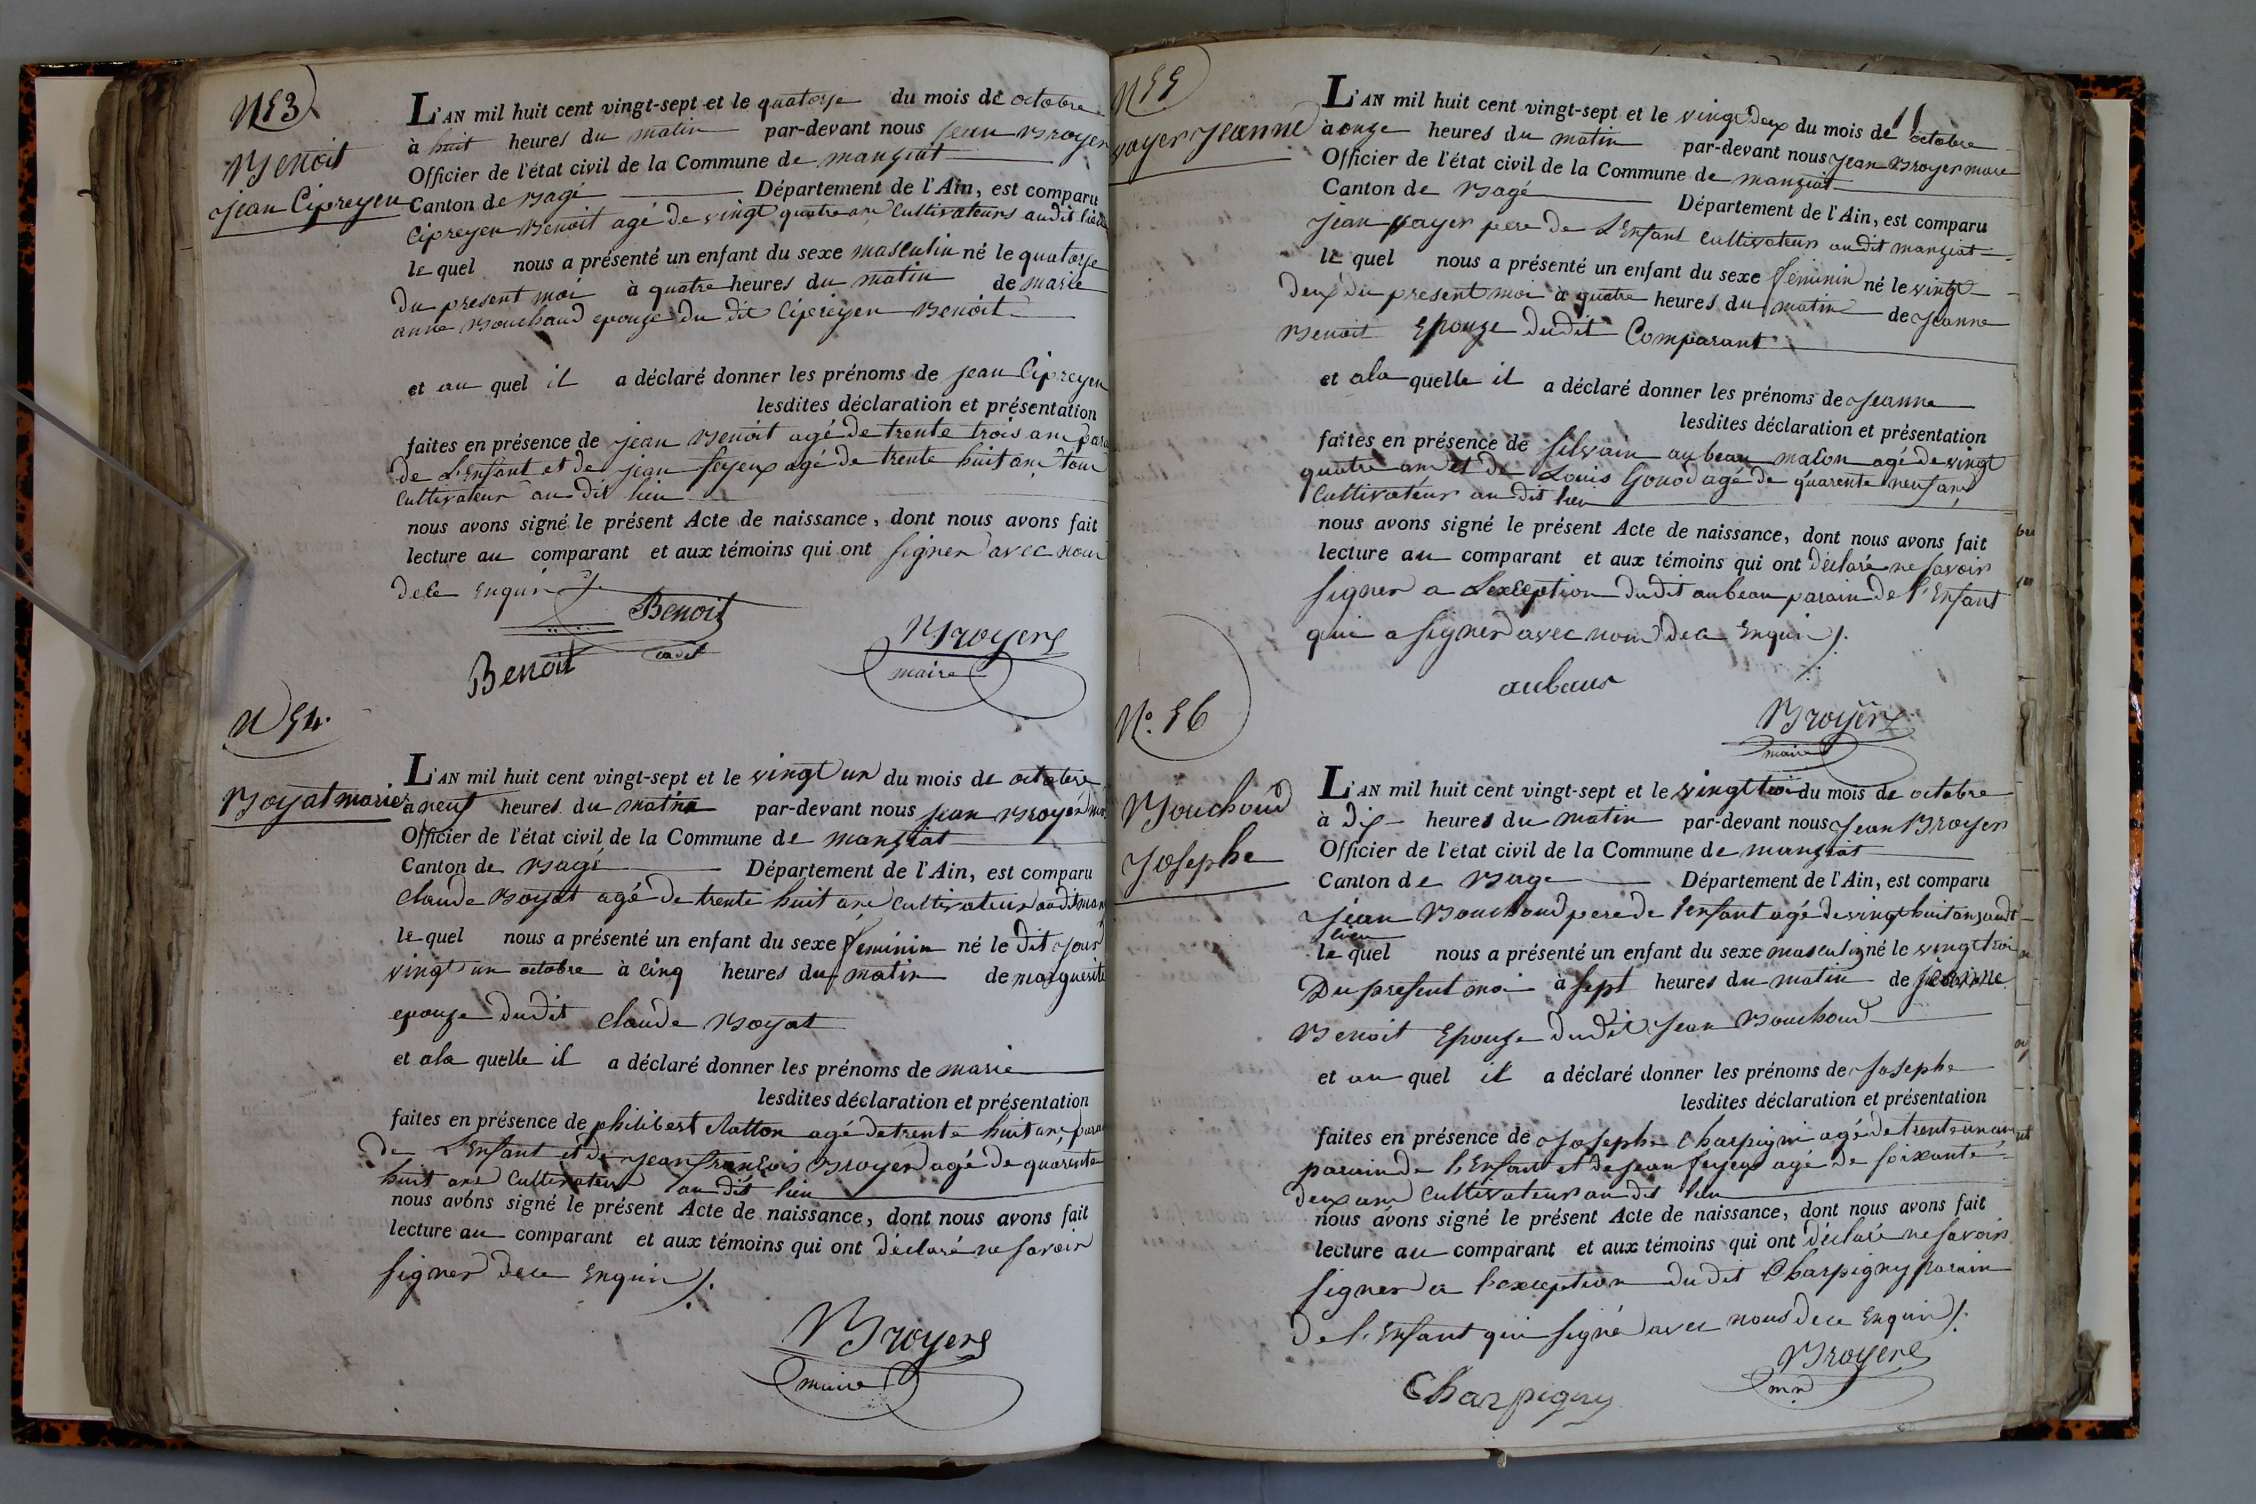 N 53
Benoit
jean Cipreyen
L'AN mil huit cent vingt-sept et le quatorze du mois de octobre
à huit heures du matin par-devant nous jean Broyer
Officier de l'état civil de la Commune de manziat
Canton de Bagé Département de l'Ain, est comparu
Cipreyen Benoit agé de vingt quatre an Cultivateurs audit lieu
le quel nous a présenté un enfant du sexe masculin né le quatorze
du present moi à quatre heures du matin de marie
anne Bouchaud epouze du dit Cipreyen Benoit
et au quel il a déclaré donner les prénoms de jean Cipreyen
lesdites déclaration et présentation
faites en présence de jean Benoit agé de trente trois an
de L'Enfant et de jean feyeux agé de trente huit an tous
Cultivateur au dit lieu
nous avons signé le présent Acte de naissance, dont nous avons fait
lecture au comparant et aux témoins qui ont signer avec nous
de ce Enquis
Benoit
cadet
Benoit
Broyer
maire
N 54
Boyat marie
L'AN mil huit cent vingt-sept et le vingt un du mois de octobre
à neuf heures du matin par-devant nous jean Broyer
Officier de l'état civil de la Commune de manziat
Canton de Bagé Département de l'Ain, est comparu
Claude Boyat agé de trente huit ans Cultivateur audit
le quel nous a présenté un enfant du sexe feminin né le dit jour
vingt un octobre à cinq heures du matin de marguerite
epouze dudit Claude Boyat
et ala quelle il a déclaré donner les prénoms de marie
lesdites déclaration et présentation
faites en présence de philibert Catton agé de trente huit an,
de L'Enfant et de jean françois Broyer agé de quarente
huit ans Cultivateur au dit lieu
nous avons signé le présent Acte de naissance, dont nous avons fait
lecture au comparant et aux témoins qui ont déclaré ne savoir
signer de ce Enquis /.
Broyer
maire
N 55
jeanne
L'AN mil huit cent vingt-sept et le vingt deux du mois de octobre
à onze heures du matin par-devant nous jean Broyer maire
Officier de l'état civil de la Commune de manziat
Canton de Bagé Département de l'Ain, est comparu
jean payer pere de L'Enfant Cultivateur audit manziat
le quel nous a présenté un enfant du sexe feminin né le vingt
deux du present moi à quatre heures du matin de jeanne
Benoit Epouze dudit Comparant
et ala quelle il a déclaré donner les prénoms de jeanne
lesdites déclaration et présentation
faites en présence de silvain aubeau malon agé de vingt
quatre an et de Louis Gonod agé de quarente neuf ans
Cultivateur au dit lieu
nous avons signé le présent Acte de naissance, dont nous avons fait
lecture au comparant et aux témoins qui ont déclaré ne savoir
signer a L'exception dudit aubeau parain de l'Enfant
qui a signer avec nous de ce Enquis /.
aubaus
Broyer
maire
N.º 56
Bouchoud
Josephe
L'AN mil huit cent vingt-sept et le vingt trois du mois de octobre
à dix heures du matin par-devant nous jean Broyer
Officier de l'état civil de la Commune de manziat
Canton de Bage Département de l'Ain, est comparu
jean Bouchoud pere de l'enfant agé de vingt huit ans, audit
lieu
le quel nous a présenté un enfant du sexe masculin né le vingt trois
Du present moi à sept heures du matin de jeanne
Benoit Epouze dudit jean Bouchoud
et au quel il a déclaré donner les prénoms de Josephe
lesdites déclaration et présentation
faites en présence de Josephe Charpigni agé de trente un an
parain de l'Enfant et de jean feyeux agé de soixante
deux ans Cultivateur au dit lieu
nous avons signé le présent Acte de naissance, dont nous avons fait
lecture au comparant et aux témoins qui ont déclaré ne savoir
signer a l'exception dudit Charpigny parain
de l'Enfant qui signé avec nous de ce Enquis /.
Broyer
Charpigny